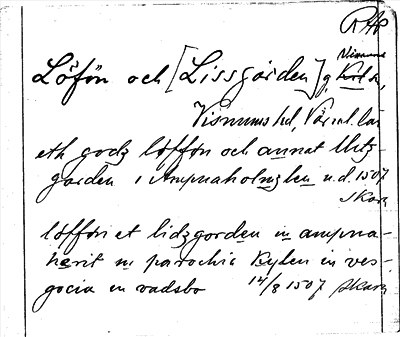 RAP
Visnums
Löfön och [Lissgården] g, Karls k,
Visnums hd, Värml. län
eth godz löffön och annat litz-
garden i Ampnaholmzlen u.d. 1507
Skara
löffön et lidzgorden in ampna-
herit in parochie Kylen in ves-
gocia in vadsbo 14/8 1507 Skara